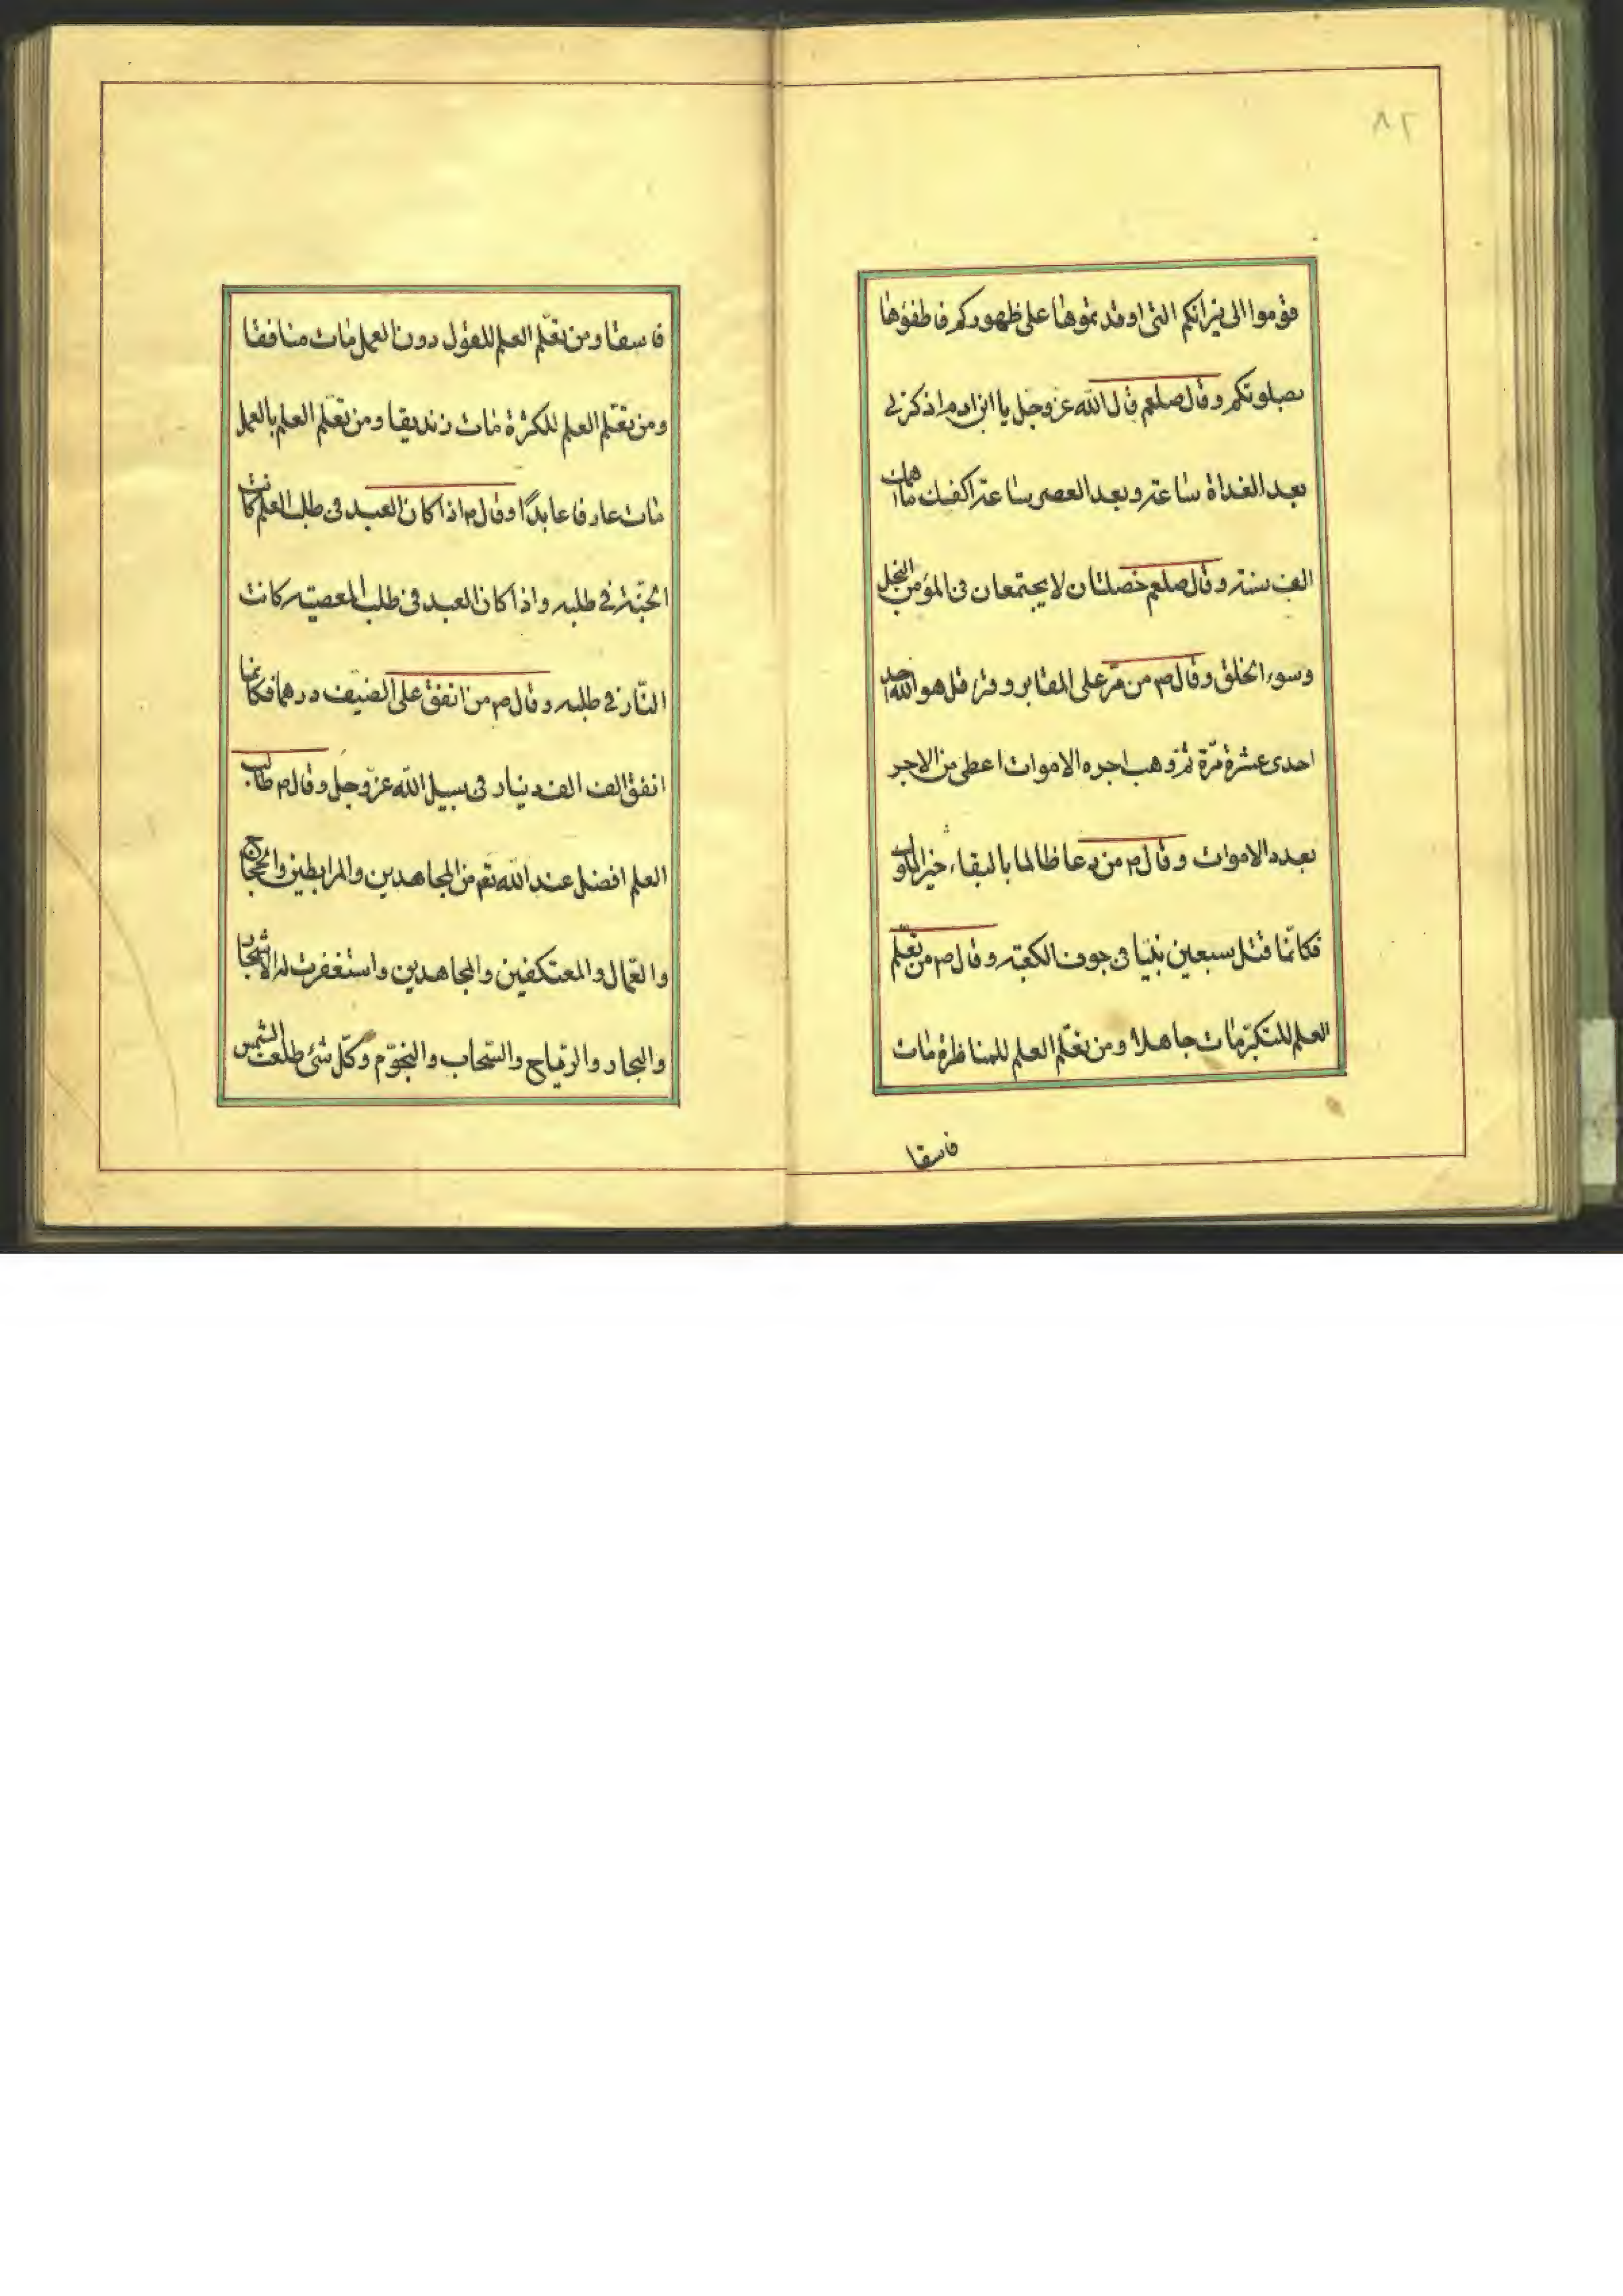 ٨٢
قوموا الى نيرانكم التى اوقدتموها على ظهوركم فاطفؤها
بصلوتكم وقال صلعم قال الله عز وجل يا ابن ادم اذكرنى
بعد الغداة ساعة وبعد العصر ساعة اكفك ما اهمك
الف سنة وقال صلعم خصلتان لا يجتمعان فى المؤمن البخل
وسوء الخلق وقال ص من مرّ على المقابر وقرء قل هو الله احد
احدى عشرة مرّة ثمّ وهب اجره الاموات اعطى من الاجر
بعدد الاموات وقال ص من دعا ظالما بالبقاء،
فكانّما قتل سبعين نبيّا فى جوف الكعبة وقال ص من تعلّم
العلم للتكبّر مات جاهلا ومن تعلّم العلم للمناظرة مات
فاسقا
فاسقا ومن تعلّم العلم للقول دون العمل مات منافقا
ومن تعلّم العلم للكثرة مات زنديقا ومن تعلّم العلم بالعمل
مات عارفا عابدًا وقال ص اذا كان العبد فى طلب العلم كانت
الجنّة فى طلبه واذا كان العبد فى طلب المعصية كانت
النّار فى طلبه وقال ص من انفق على الضيف درهما فكانما
انفق الف الف دينار فى سبيل الله عزّ وجلّ وقال ص طالب
العلم افضل عند الله تعم من المجاهدين والمرابطين والحجاج
والعمّال والمعتكفين والمجاهدين واستغفرت له الاشجار
والبحار والرّياح والسّحاب والنجوم وكلّ شئ طلعت الشمس